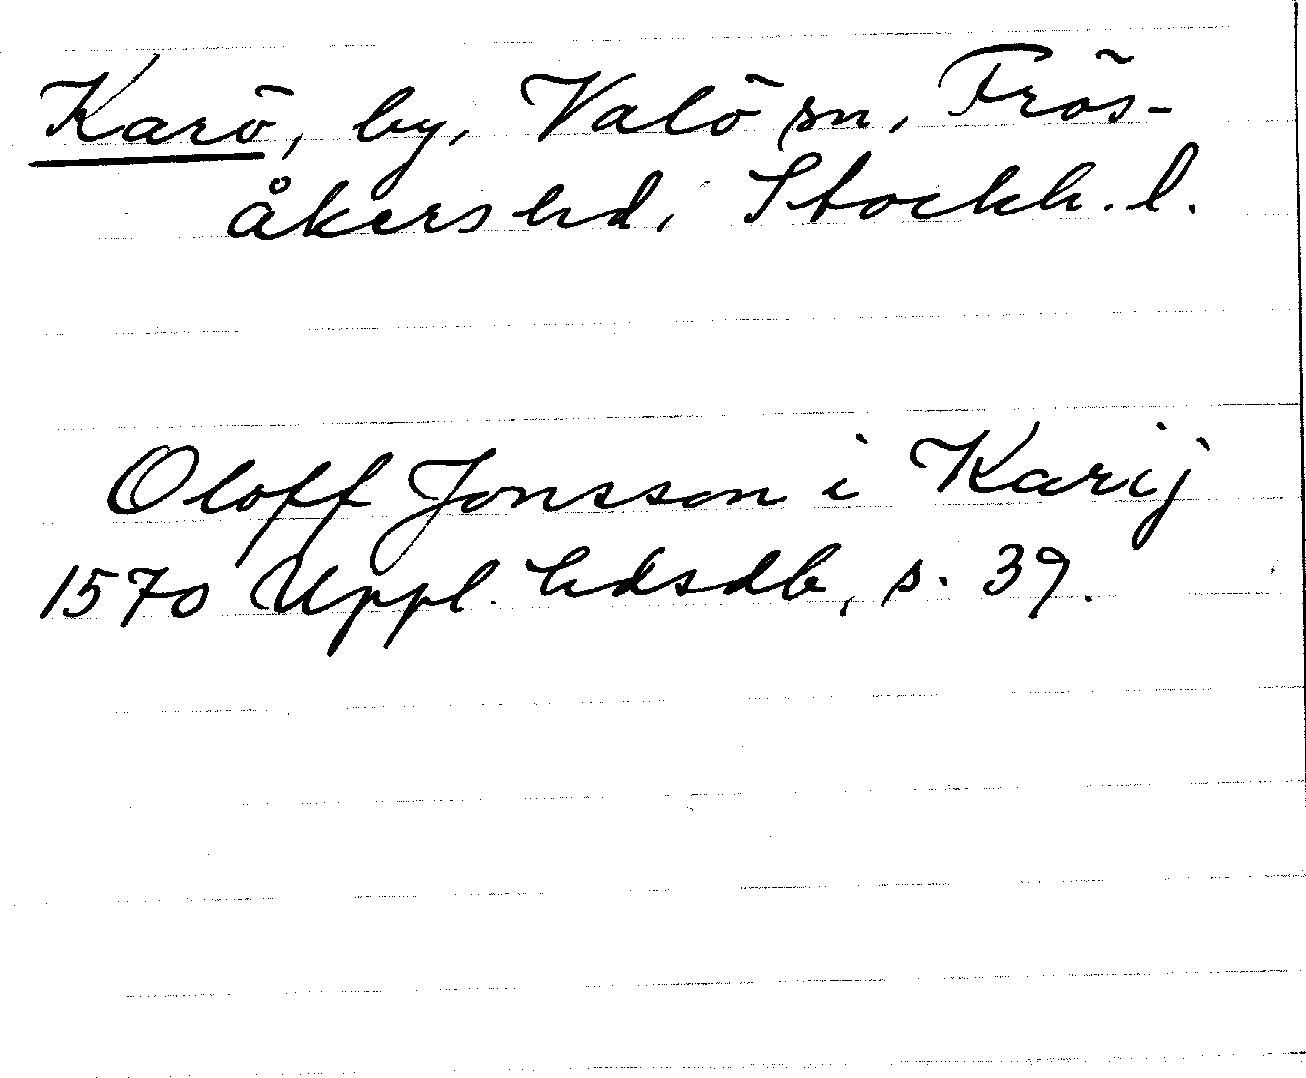 Karö, by, Valö sn, Frös-
åkers hd, Stockh. l.
Oloff Jonsson i Karij
1570 Uppl. hdsdb, s. 39.